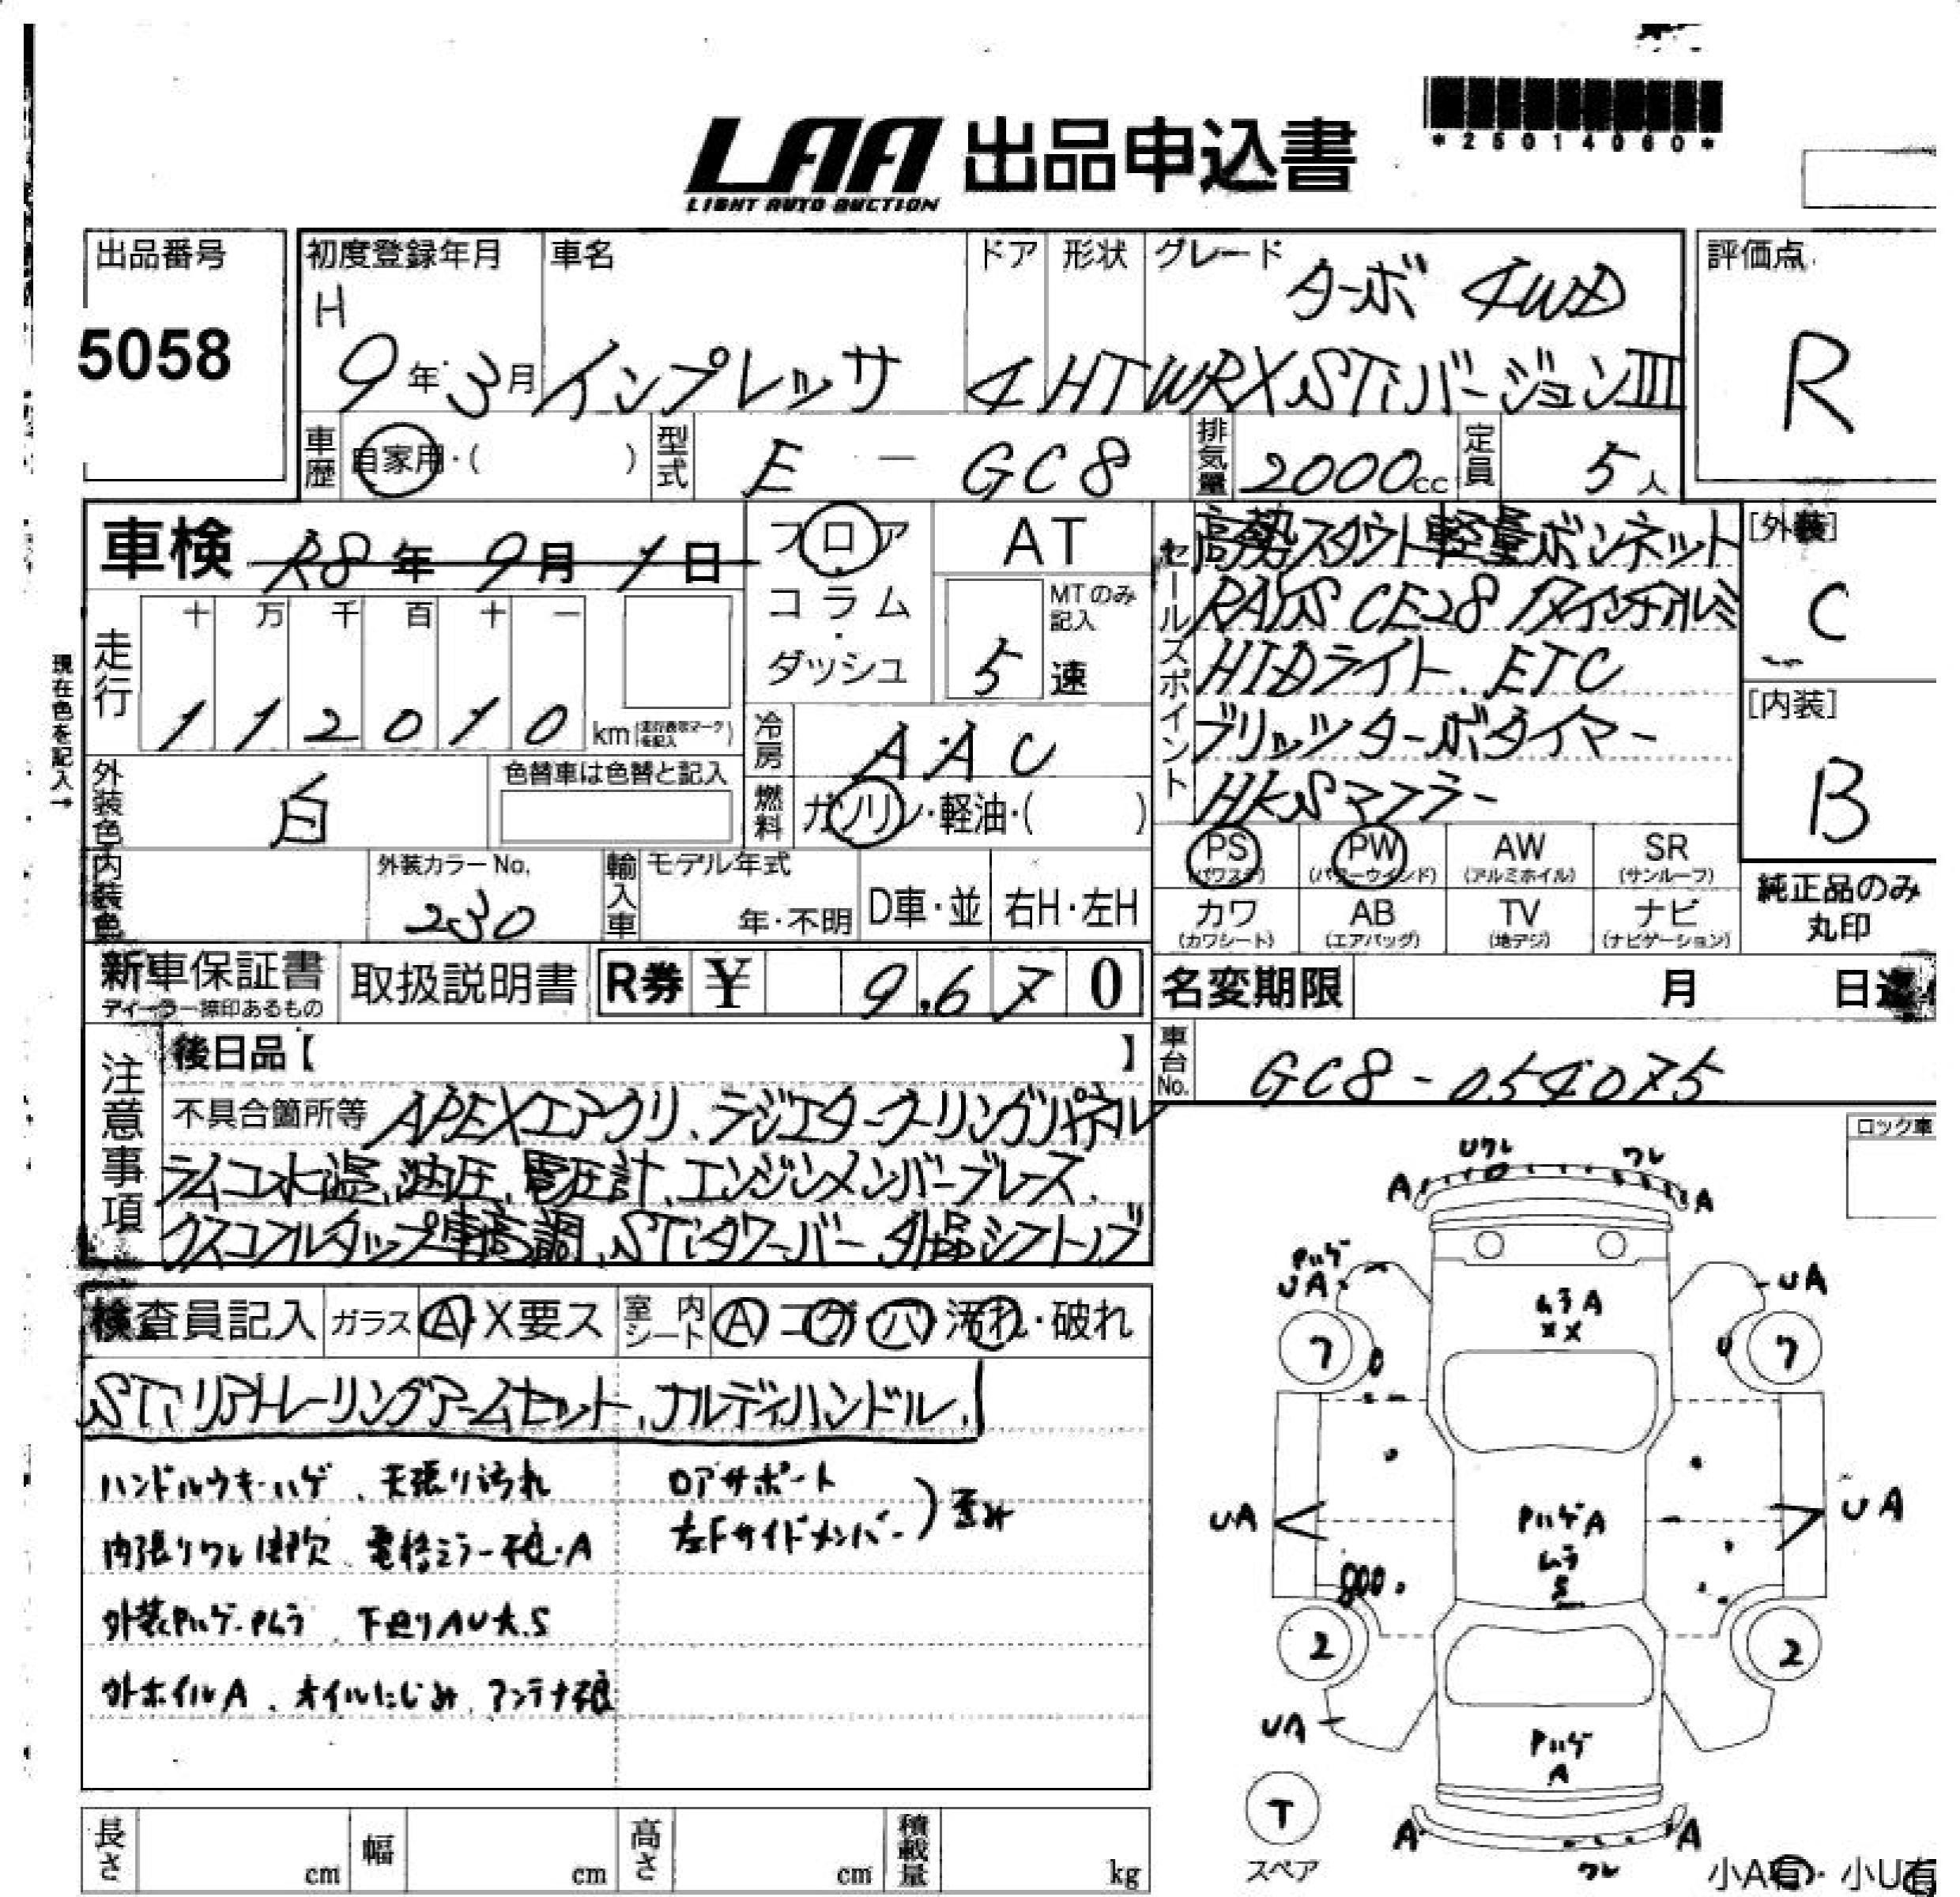 *25014060*
LAA 出品申込書
LIGHT AUTO AUCTION
出品番号
5058
初度登録年月
H
9年3月
車名
インプレッサ
ドア
4
形状
HT
グレード
ターボ 4WD
WRX STi バージョンIII
評価点
R
車歴
自家用・( )
型式
E - GC8
排気量
2000cc
定員
5人
車検 R8年 9月 1日
フロア
コラム
・
ダッシュ
AT
MTのみ記入
5速
セールスポイント
軽量ボンネット
RAYS CE28
HIDライト、ETC
ブリッツターボタイマー
HKSマフラー
[外装]
C
[内装]
B
純正品のみ
丸印
現在色を記入→
走行
十 万 千 百 十 一
1 1 2 0 1 0
km
冷房
AAC
燃料
ガソリン・軽油・( )
外装色
白
色替車は色替と記入
内装色
外装カラーNo.
230
輸入車
モデル年式
年・不明
D車・並
右H・左H
PS
(パワステ)
PW
(パワーウインド)
AW
(アルミホイル)
SR
(サンルーフ)
カワ
(カワシート)
AB
(エアバッグ)
TV
(地デジ)
ナビ
(ナビゲーション)
新車保証書
ディーラー捺印あるもの
取扱説明書
R券 ¥ 9,670
名変期限 月 日
車台No.
GC8-054075
注意事項
後日品【 】
不具合箇所等 APEXエアクリ、ラジエタークーリングパネル
水温、油圧、電圧計、エンジンメンバーブレース、
クスコフルタップ車高調、STiタワーバー、外品シフトノブ
検査員記入
ガラス A・X要ス
室内シート A コゲ・バ 汚れ・破れ
STiリアトレーリングアームセット、ナルディハンドル、
ハンドルウキ・ハゲ、天張り汚れ
内張りワレ 電格ミラー A
外装Pハゲ・Pムラ、下廻りAU大.S
外ホイルA、オイルにじみ、アンテナ
ロアサポート
左Fサイドメンバー
歪み
ロック車
Uワレ
ワレ
A
A
Pハゲ
UA
UA
ムラA
××
7
7
UA
UA
PハゲA
ムラ
S
2
2
UA
Pハゲ
A
T
スペア
A
A
ワレ
小A有・小U有
長さ cm
幅 cm
高さ cm
積載量 kg